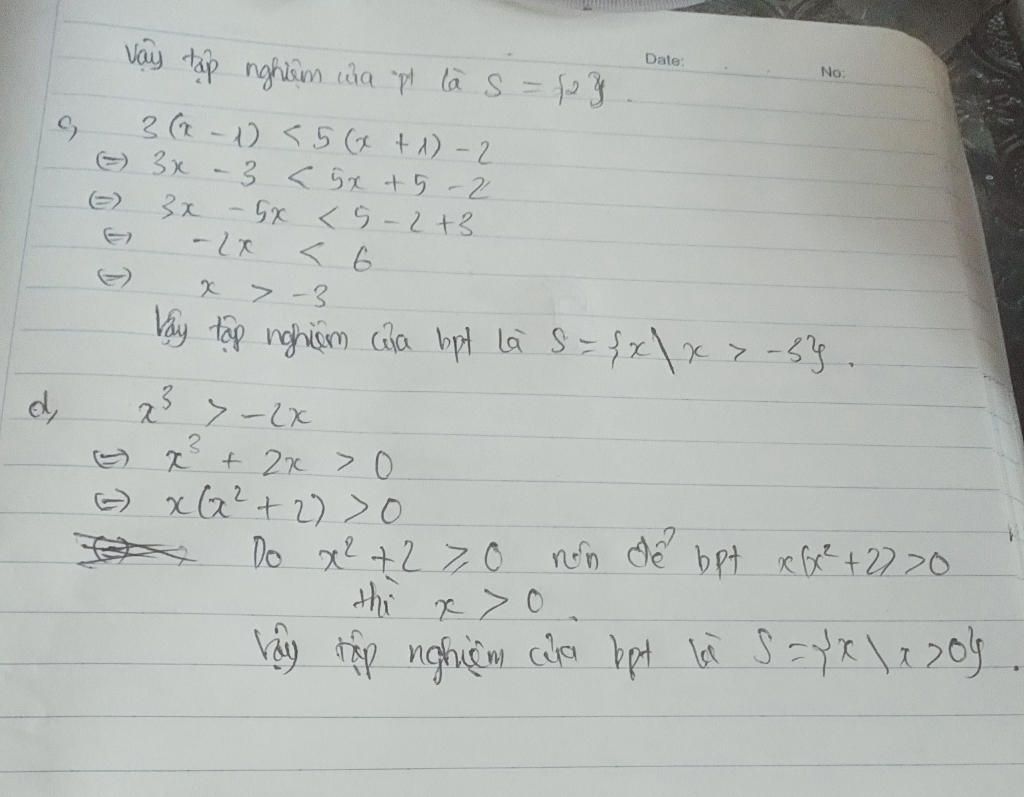 Date:
No:
Vậy tập nghiệm của pt là S = {2}.
c, 3(x - 1) < 5(x + 1) - 2
⇔ 3x - 3 < 5x + 5 - 2
⇔ 3x - 5x < 5 - 2 + 3
⇔ -2x < 6
⇔ x > -3
Vậy tập nghiệm của bpt là S = {x \ x > -3}.
d, x³ > -2x
⇔ x³ + 2x > 0
⇔ x(x² + 2) > 0
Do x² + 2 ⩾ 0 nên để bpt x(x² + 2) > 0
thì x > 0.
Vậy tập nghiệm của bpt là S = {x \ x > 0}.